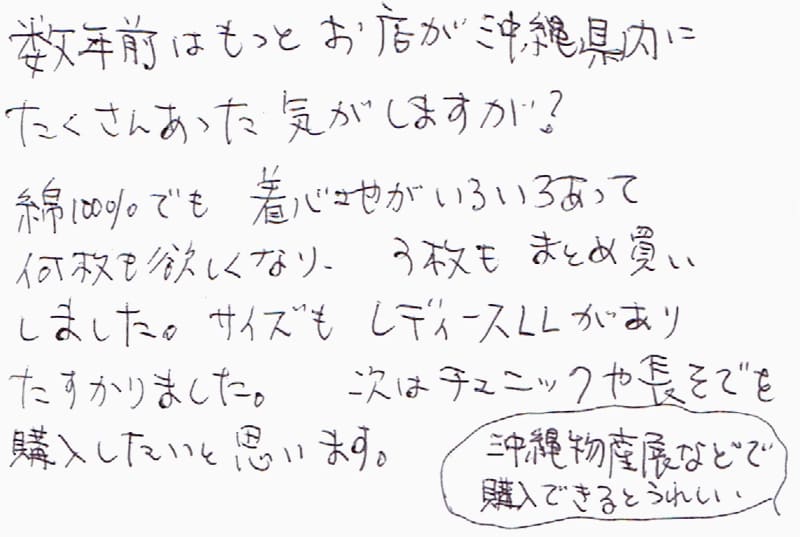 数年前はもっとお店が沖縄県内に
たくさんあった気がしますが?
綿100%でも 着心地がいろいろあって
何枚も欲しくなり、 3枚も まとめ買い
しました。 サイズも レディースLLがあり
たすかりました。 次はチュニックや長そでを
購入したいと思います。
沖縄物産展などで
購入できるとうれしい、